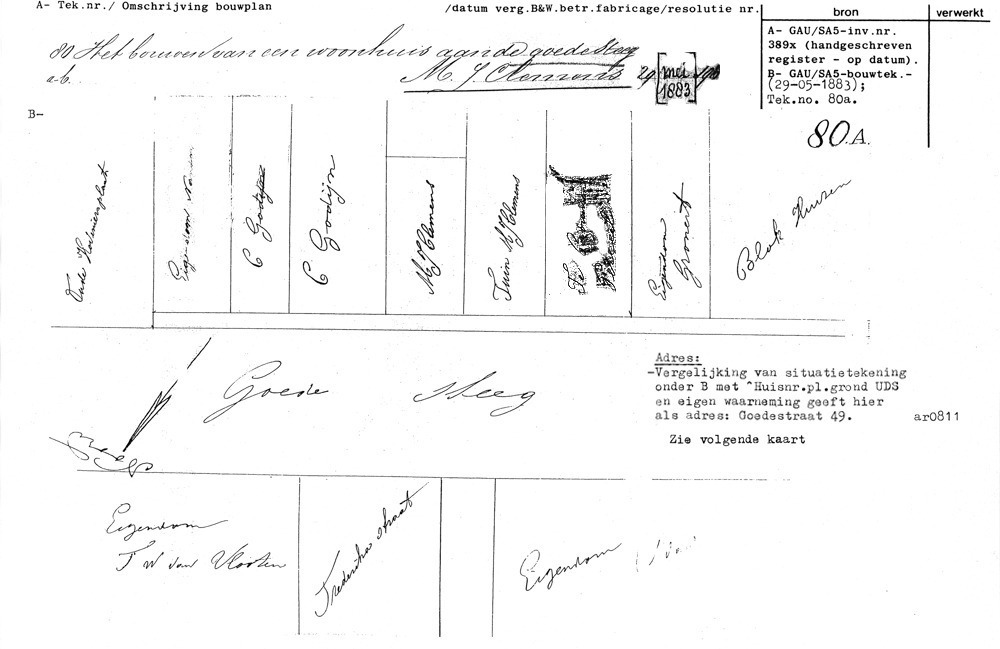 A- Tek.nr./ Omschrijving bouwplan
/datum verg.B&W.betr.fabricage/resolutie nr.
bron
verwerkt
80 Het bouwen van een woonhuis aan de goede Steeg
a-b.
M. J. Clemens 29 [mei 1883]
A- GAU/SA5-inv.nr.
389x (handgeschreven
register - op datum).
B- GAU/SA5-bouwtek.-
(29-05-1883);
Tek.no. 80a.
80.A.
B-
Eigendom
C Godijn
C Godijn
M J Clemens
Tuin M J Clemens
Eigendom
Gronert
Blok Huizen
Goede Steeg
Adres:
-Vergelijking van situatietekening
onder B met ^Huisnr.pl.grond UDS
en eigen waarneming geeft hier
als adres: Goedestraat 49.
ar0811
Zie volgende kaart
Eigendom
F W van Vloten
Frederika straat
Eigendom